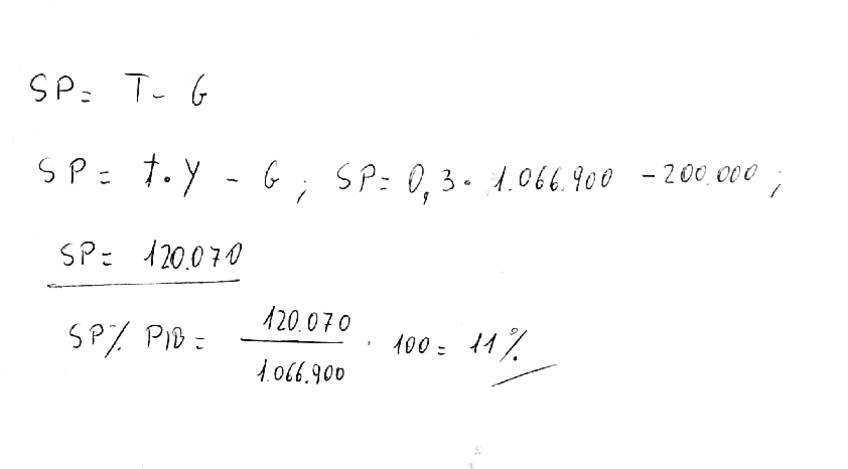 SP = T - G
SP = t. Y - G ; SP = 0,3 · 1.066.900 - 200.000 ;
SP = 120.070
SP% PIB = 120.070 / 1.066.900 · 100 = 11%